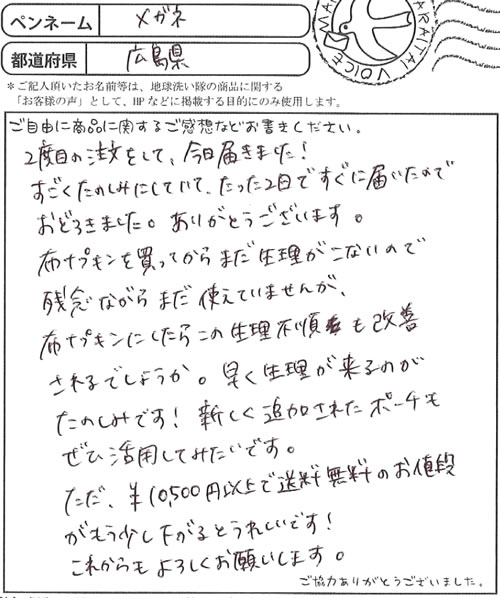 ペンネーム メガネ
都道府県 広島県
＊ご記入頂いたお名前等は、地球洗い隊の商品に関する
「お客様の声」として、HPなどに掲載する目的にのみ使用します。
ご自由に商品に関するご感想などお書きください。
2度目の注文をして、今日届きました！
すごくたのしみにしていて、たった2日ですぐに届いたので
おどろきました。ありがとうございます。
布ナプキンを買ってからまだ生理がこないので
残念ながらまだ使えていませんが、
布ナプキンにしたらこの生理不順も改善
されるでしょうか。早く生理が来るのが
たのしみです！新しく追加されたポーチも
ぜひ活用してみたいです。
ただ、¥10,500円以上で送料無料のお値段
がもう少し下がるとうれしいです！
これからもよろしくお願いします。
ご協力ありがとうございました。
VOICE